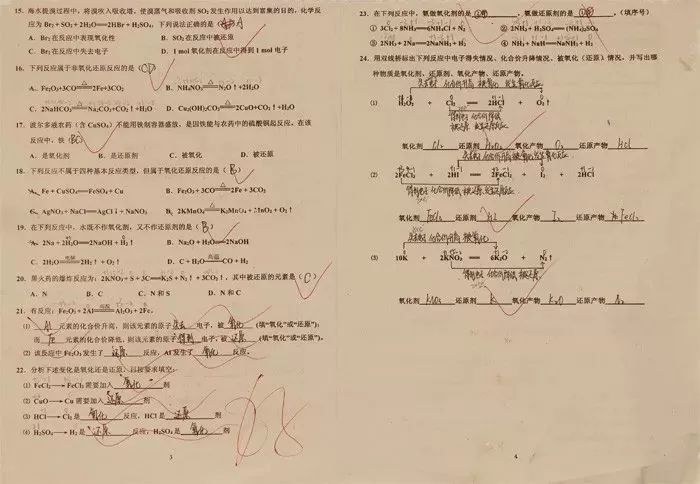 15. 海水提溴过程中，将溴吹入吸收塔，使溴蒸气和吸收剂 SO₂ 发生作用以达到富集的目的，化学反
应为 Br₂ + SO₂ + 2H₂O═2HBr + H₂SO₄，下列说法正确的是（A）
A. Br₂ 在反应中表现氧化性 B. SO₂ 在反应中被还原
C. Br₂ 在反应中失去电子 D. 1 mol 氧化剂在反应中得到 1 mol 电子
16. 下列反应属于非氧化还原反应的是（CD）
A. Fe₂O₃+3CO═2Fe+3CO₂ B. NH₄NO₃═N₂O↑+2H₂O
C. 2NaHCO₃═Na₂CO₃+CO₂↑+H₂O D. Cu₂(OH)₂CO₃═2CuO+CO₂↑+H₂O
17. 波尔多液农药（含 CuSO₄）不能用铁制容器盛放，是因铁能与农药中的硫酸铜起反应。在该
反应中，铁（BC）
A. 是氧化剂 B. 是还原剂 C. 被氧化 D. 被还原
18. 下列反应不属于四种基本反应类型，但属于氧化还原反应的是（B）
A. Fe + CuSO₄═FeSO₄ + Cu B. Fe₂O₃ + 3CO═2Fe + 3CO₂
C. AgNO₃ + NaCl═AgCl↓ + NaNO₃ D. 2KMnO₄═K₂MnO₄ + MnO₂ + O₂↑
19. 在下列反应中，水既不作氧化剂，又不作还原剂的是（B）
A. 2Na + 2H₂O═2NaOH + H₂↑ B. Na₂O + H₂O═2NaOH
C. 2H₂O═2H₂↑ + O₂↑ D. C + H₂O═CO + H₂
20. 黑火药的爆炸反应为：2KNO₃ + S + 3C═K₂S + N₂↑ + 3CO₂↑，其中被还原的元素是（C）
A. N B. C C. N 和 S D. N 和 C
21. 有反应：Fe₂O₃ + 2Al═Al₂O₃ + 2Fe，
(1) Al 元素的化合价升高，则该元素的原子 失去 电子，被 氧化（填“氧化”或“还原”）；
而 Fe 元素的化合价降低，则该元素的原子 得到 电子，被 还原（填“氧化”或“还原”）。
(2) 该反应中 Fe₂O₃ 发生了 还原 反应，Al 发生了 氧化 反应。
22. 分析下述变化是氧化还是还原，以按要求填空：
(1) FeCl₂→FeCl₃ 需要加入 氧化 剂
(2) CuO→Cu 需要加入 还原 剂
(3) HCl→Cl₂ 是 氧化 反应，HCl 是 还原 剂
(4) H₂SO₄→H₂ 是 还原 反应，H₂SO₄ 是 氧化 剂
3
23. 在下列反应中，氨做氧化剂的是 ，氨做还原剂的是 ，（填序号）
① 3Cl₂ + 8NH₃═6NH₄Cl + N₂ ② 2NH₃ + H₂SO₄═(NH₄)₂SO₄
③ 2NH₃ + 2Na═2NaNH₂ + H₂ ④ NH₃ + NaH═NaNH₂ + H₂
24. 用双线桥标出下列反应中电子得失情况、化合价升降情况、被氧化（还原）情况，并写出哪
种物质是氧化剂、还原剂、氧化产物、还原产物。
(1) H₂O₂ + Cl₂ ═ 2HCl + O₂↑
氧化剂 Cl₂ 还原剂 H₂O₂ 氧化产物 O₂ 还原产物 HCl
(2) 2FeCl₃ + 2HI ═ 2FeCl₂ + I₂ + 2HCl
氧化剂 FeCl₃ 还原剂 HI 氧化产物 I₂ 还原产物 FeCl₂
失去电子 化合价升高 被氧化
(3) 10K + 2KNO₃ ═ 6K₂O + N₂↑
得到电子 化合价降低 被还原
氧化剂 KNO₃ 还原剂 K 氧化产物 K₂O 还原产物 N₂
4